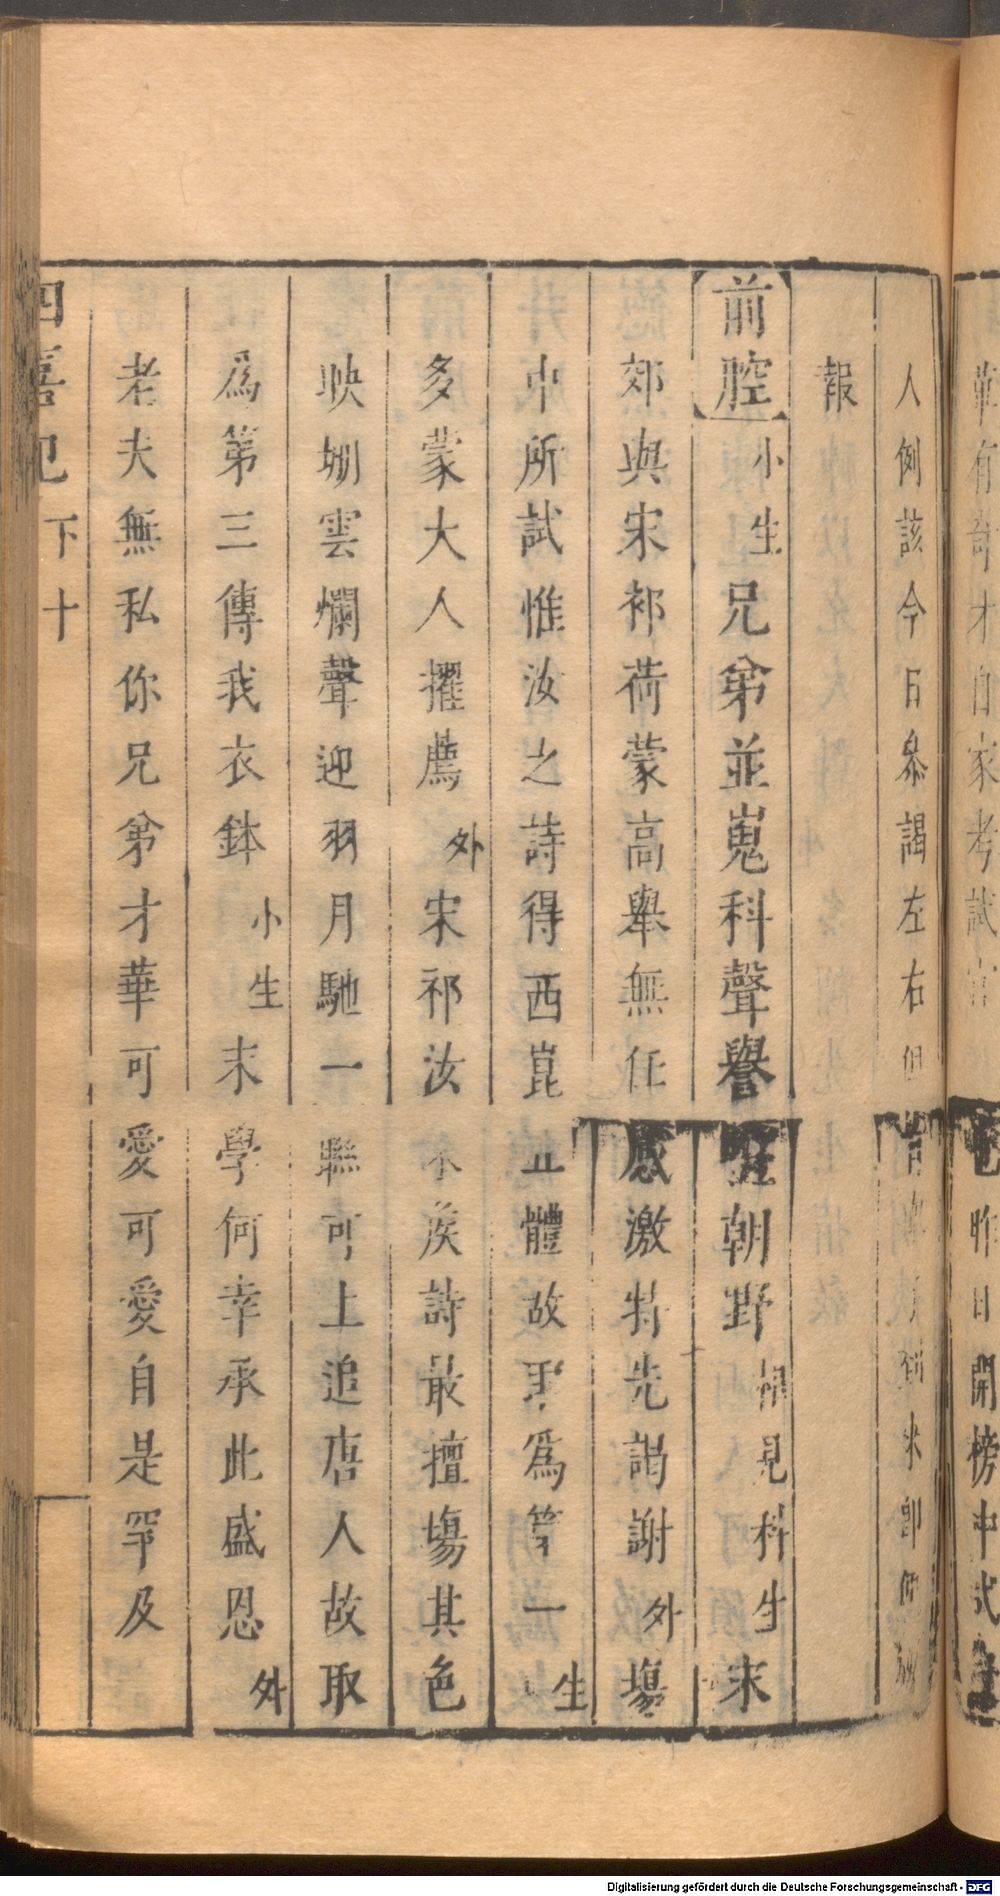 人例該今日叅謁左右但
來卽
報
前腔小生兄弟並嵬科聲譽 朝野相見科生末
郊與宋祁荷蒙高舉無任感激特先謁謝外塲
中所試惟汝之詩得西崑 體故 爲第一生
多蒙大人擢薦外宋祁汝 詩最擅塲其色
映 雲爛聲迎羽月馳一聯可上追唐人故取
爲第三傳我衣鉢小生末學何幸承此盛恩外
老夫無私你兄弟才華可愛可愛自是罕及
四喜記 下 十
有 才自家考試官 昨日開榜中式
Digitalisierung gefördert durch die Deutsche Forschungsgemeinschaft - DFG